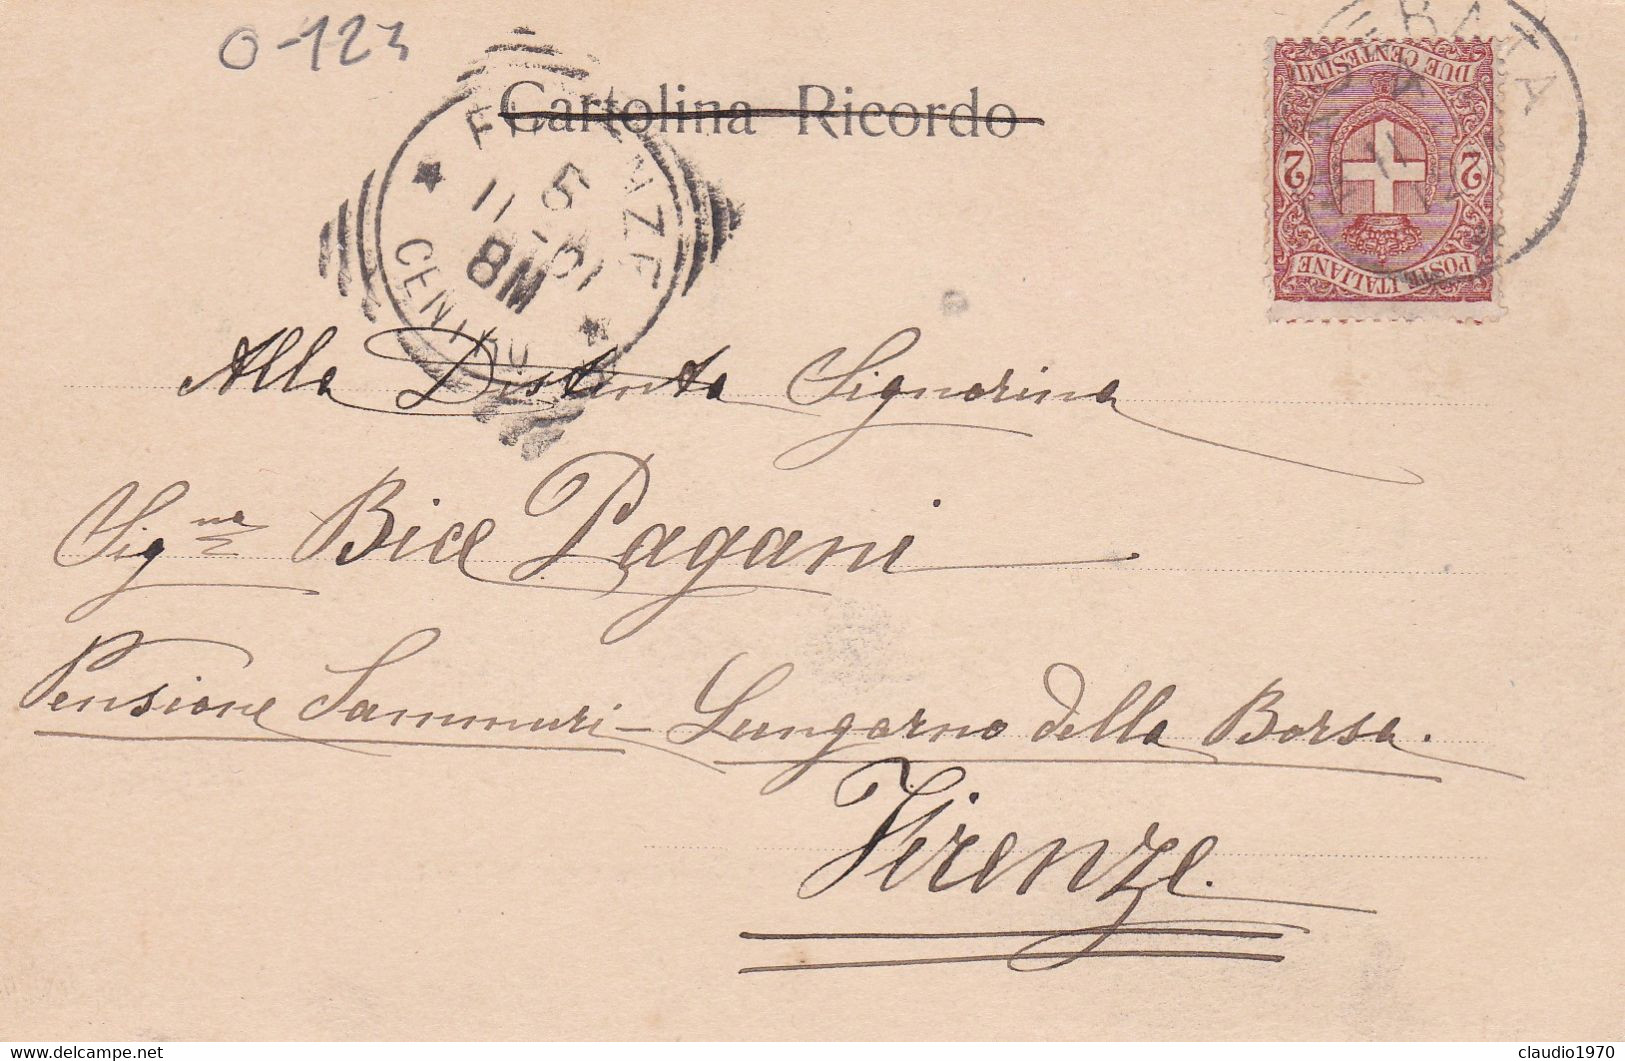 0-123
Cartolina Ricordo
POSTE ITALIANE
2 2
DUE CENTESIMI
FIRENZE
5
11-01
8M
CENTRO
Alla Distinta Signorina
Sig.na Bice Pagani
Pensione Sammuri - Lungarno della Borsa.
Firenze.
claudio1970